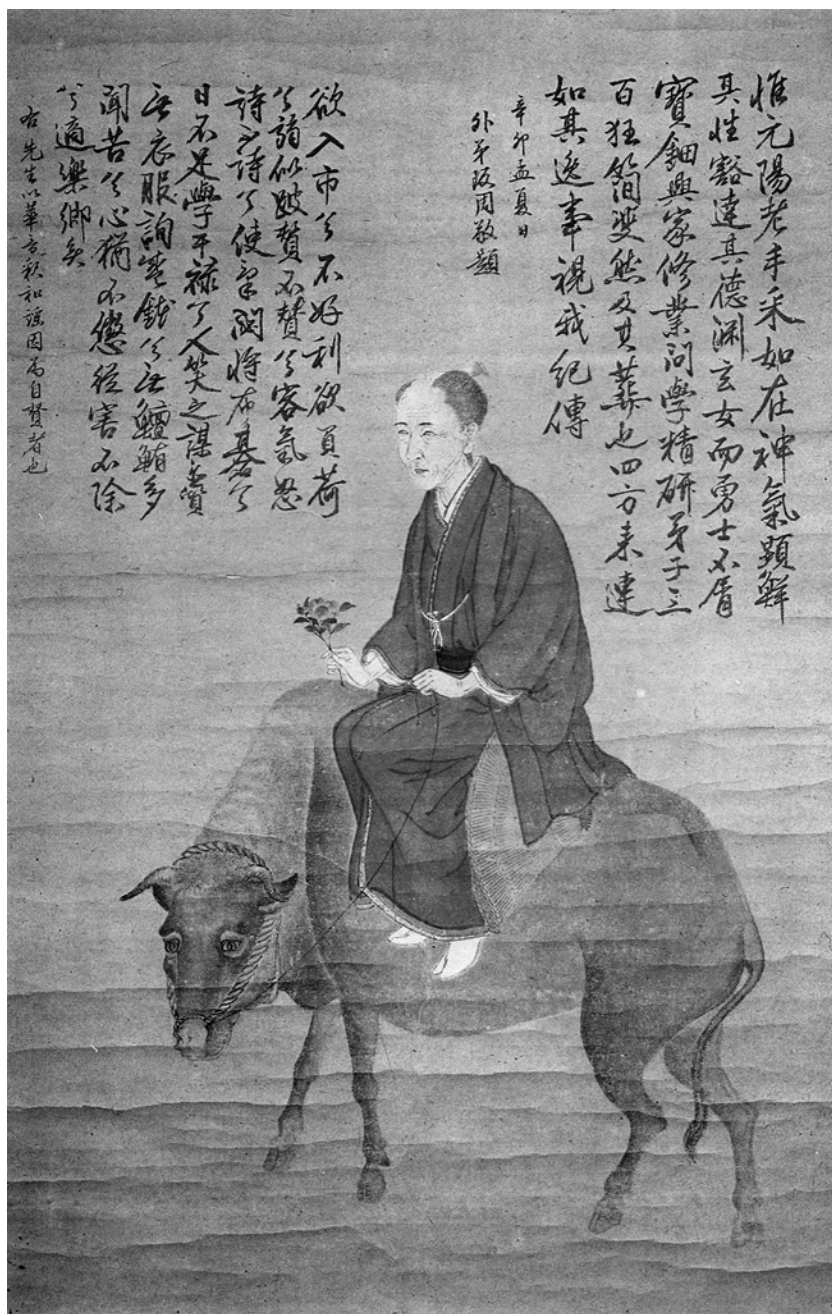 惟元陽老手采如在神氣顕鮮
其性豁達其德渊玄女而勇士不屑
寶鈿興家修業問學精研弟子三
百狂簡斐然及其葬也四方来連
如其逸事視我紀傳
辛卯孟夏日
外弟阪周敬題
欲入市兮不好利欲負荷
兮誚似跛賛不賛兮客氣忽
詩不詩兮使筆閣将布碁兮
日不足學干禄兮人笑之謀賣
兮衣服詢無錢兮無鱣鮪多
聞苦兮心猶不懲從害不除
兮適樂郷矣
右先生以華言秋和謡因為自賛者也